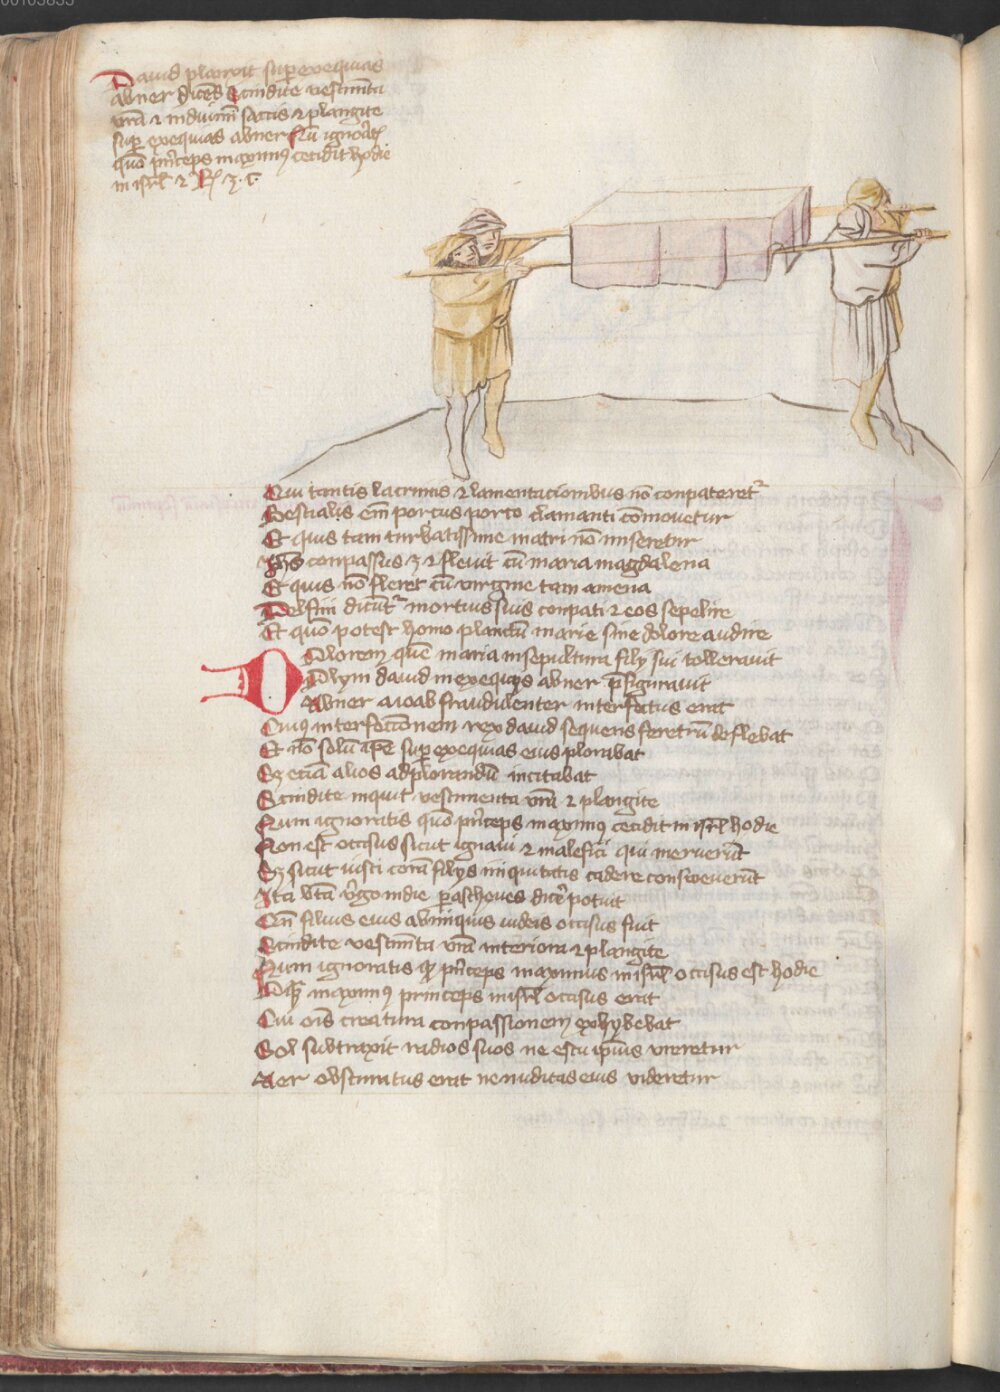 00105833
Dauid plorauit sup exequias
abner dicēs Scindite vestimēta
vrā ⁊ induimī saccis ⁊ plangite
sup exequias abner Nū ignoratꝭ
quō pn̄ceps maximꝰ cecidit hodie
in isrl̄ ⁊ Rꝭ ꝫ·
Qui tantis lacrimis ⁊ lamentacionibus nō conpateretᷣ
Bestialis em̄ porcus porco clamanti cōmouetur
Et quis tam turbatissime matri nō miseretur
Ihs̄ conpassus ꝫ ⁊ fleuit cū maria magdalena
Et quis nō fleret cū virgine tam amena
Delfini dicūtᷣ mortuis suis conpati ⁊ eos sepelire
Et quō potest homo planctū marie sine dolore audire
Dolorem quē maria in sepultura filij sui tollerauit
Olym dauid in exequijs abner p̄figurauit
Abner a ioab fraudulenter interfectus erat
Cuius interfectionem rex dauid sequens feretrū deflebat
Et nō solū ip̄e sup exequias eius plorabat
Sꝫ eciā alios ad plorandū incitabat
Scindite inquit vestimenta vrā ⁊ plangite
Num ignoratis quō pn̄ceps maximꝰ cecidit in isrl̄ hodie
Non est occisus sicut ignaui ⁊ malefici qui meruerūt
Sꝫ sicut iusti corā filijs iniquitatis cadere consweuerūt
Ita btā v̓go in die pasceues dice̓ potuit
Cū filius eius ab iniquis iudeis occisus fuit
Scindite vestimēta vrā interiora ⁊ plangite
Num ignoratis qꝫ pn̄ceps maximus in isrl̄ occisus est hodie
maximꝰ princeps in isrl̄ occisus erat
Cui oīs creatura conpassionem exhybebat
Sol subtraxit radios suos ne estu ip̄ius vreretur
Aer obscuratus erat ne nuditas eius videretur